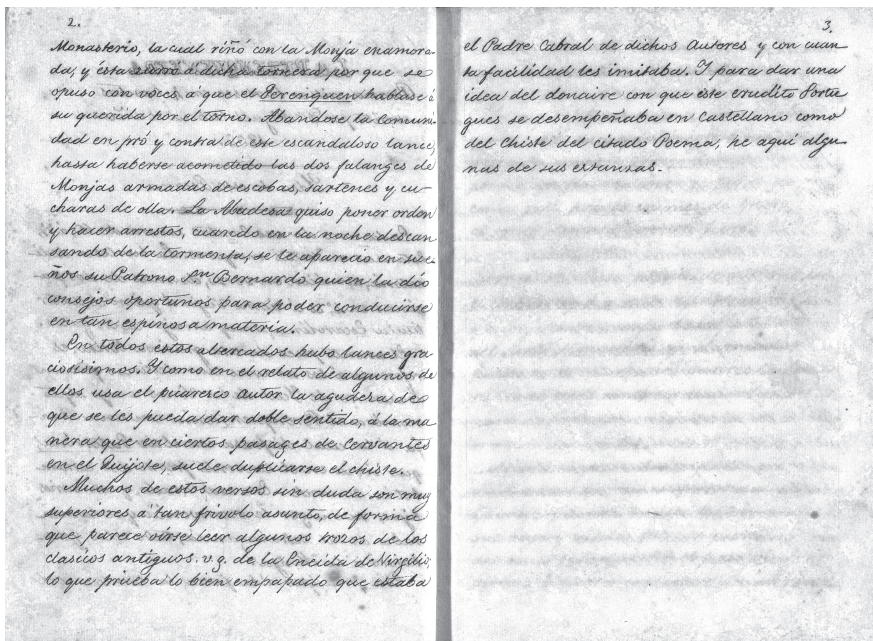 2.
Monasterio, la cual riñó con la Monja enamora-
da, y ésta zurró a dicha tornera por que se
opuso con voces a que el Derenguen hablase á
su querida por el torno. Abandose la comuni-
dad en pró y contra de este escandaloso lance,
hasta haberse acometido las dos falanges de
Monjas armadas de escobas, sartenes y cu-
charas de olla. La Abadesa quiso poner orden
y hacer arrestos, cuando en la noche descan
sando de la tormenta, se le apareció en sue-
ños su Patrono Sn. Bernardo quien la dió
consejos oportunos para poder conducirse
en tan espinosa materia.
En todos estos altercados hubo lances gra
ciosisimos. Y como en el relato de algunos de
ellos usa el picaresco autor la agudeza de
que se les pueda dar doble sentido, á la ma
nera que en ciertos pasages de Cervantes
en el Quijote, suele duplicarse el chiste.
Muchos de estos versos sin duda son muy
superiores á tan frivolo asunto, de forma
que parece oirse leer algunos trozos de los
clasicos antiguos. v.g. de la Eneida de Virgilio,
lo que prueba lo bien empapado que estaba
3.
el Padre Cabral de dichos Autores y con cuan
ta facilidad les imitaba. Y para dar una
idea del donaire con que este erudito Portu
gues se desempeñaba en Castellano como
del Chiste del citado Poema, he aquí algu-
nas de sus estanzas.-